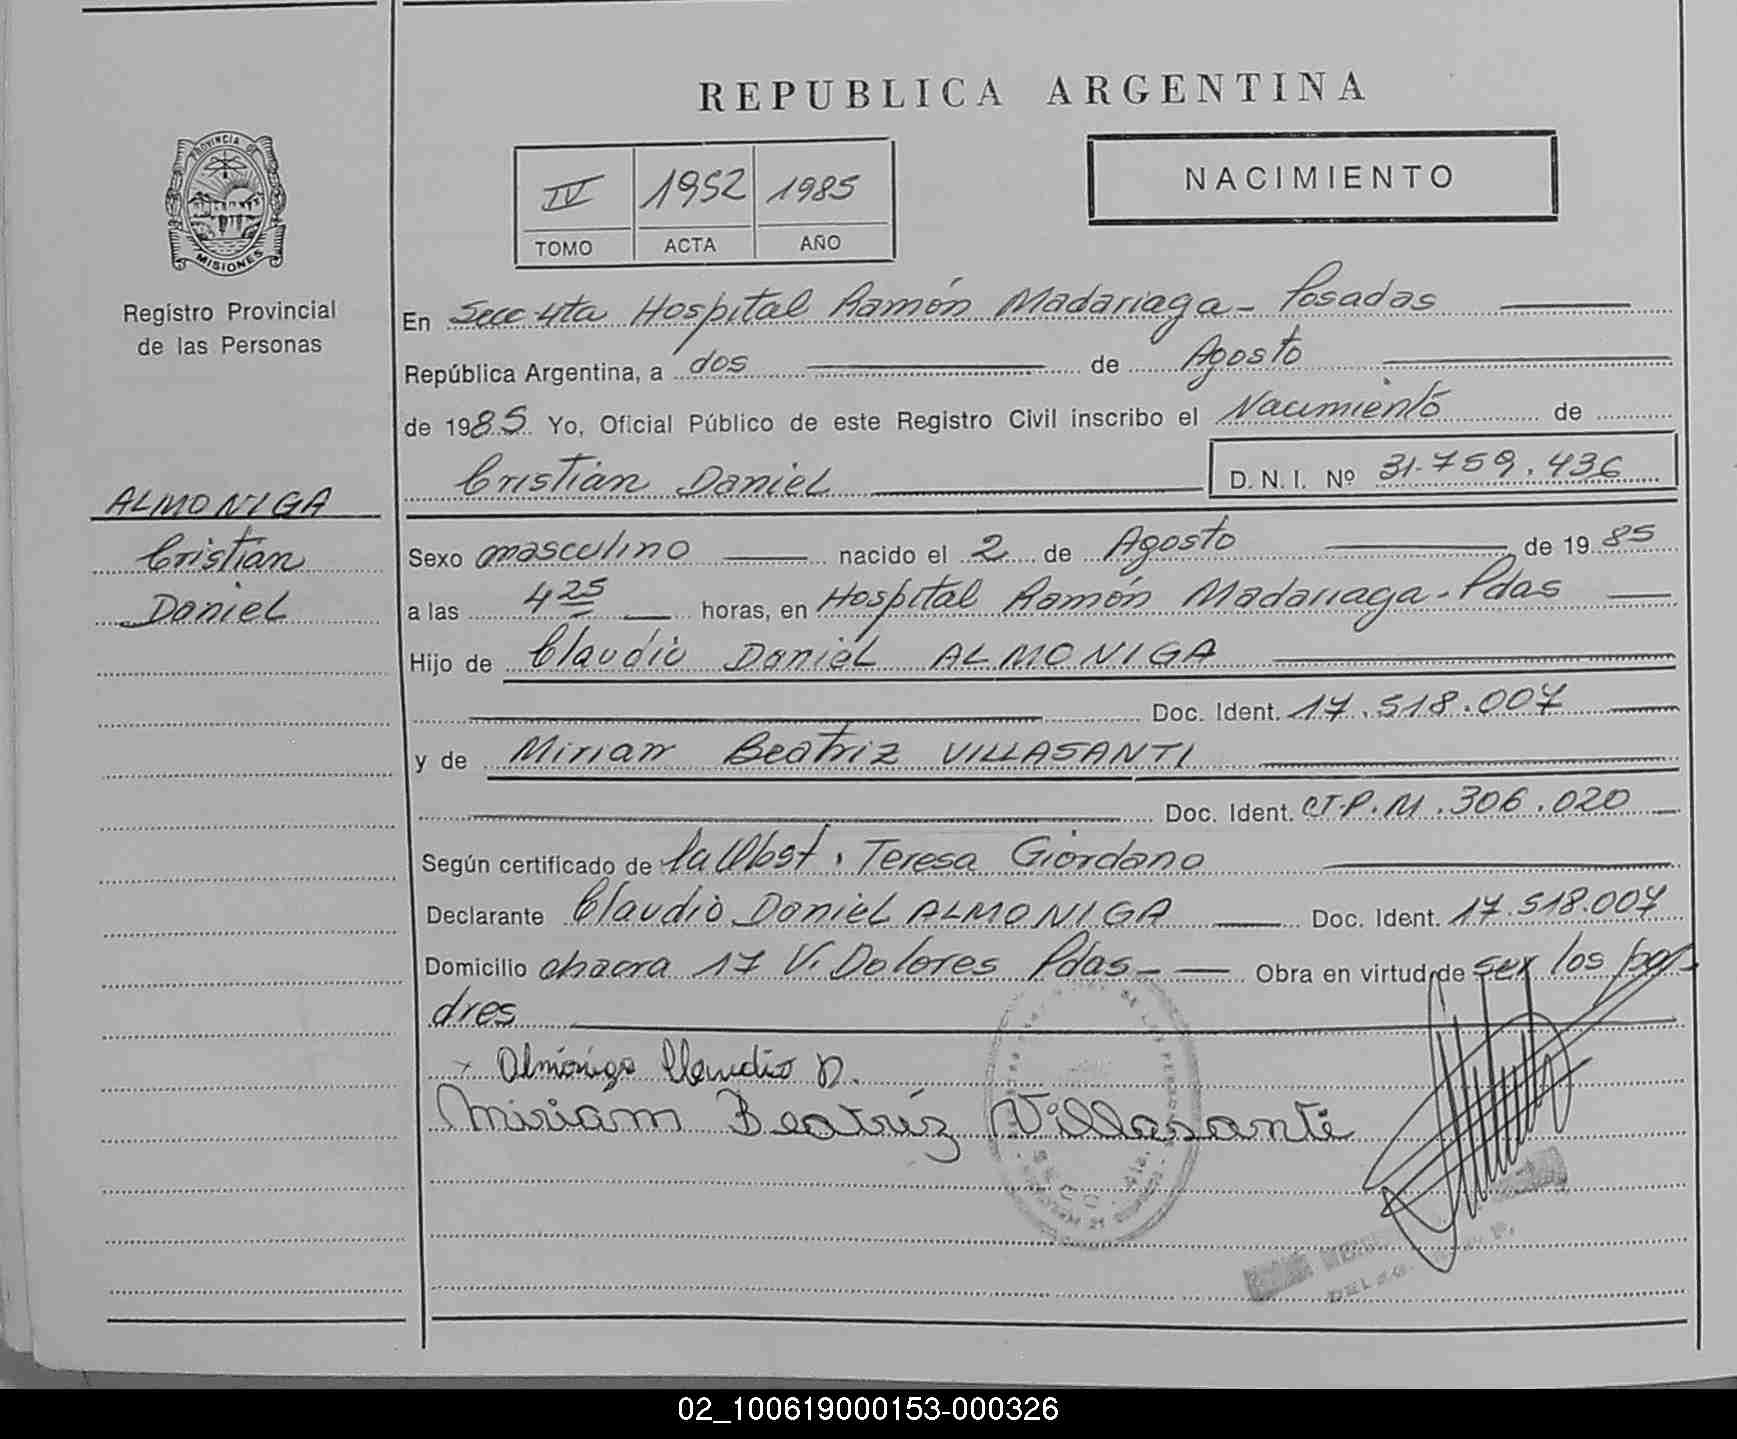 REPUBLICA ARGENTINA
PROVINCIA DE
MISIONES
Registro Provincial
de las Personas
IV 1952 1985
TOMO ACTA AÑO
NACIMIENTO
En Secc 4ta Hospital Ramón Madariaga - Posadas
República Argentina, a dos de Agosto
de 1985 Yo, Oficial Público de este Registro Civil inscribo el Nacimiento de
Cristian Daniel D.N.I. Nº 31.759.436
ALMONIGA
Cristian
Daniel
Sexo masculino nacido el 2 de Agosto de 1985
a las 4 25 horas, en Hospital Ramón Madariaga - Pdas
Hijo de Claudio Daniel ALMONIGA
Doc. Ident. 17.518.007
y de Mirian Beatriz VILLASANTI
Doc. Ident. C.I.P.M. 306.020
Según certificado de la Obst. Teresa Giordano
Declarante Claudio Daniel ALMONIGA Doc. Ident. 17.518.007
Domicilio chacra 17 V. Dolores Pdas - Obra en virtud de ser los pa-
dres
Almóniga Claudio D.
Miriam Beatríz Villasanti
SECC. 4ta.
02_100619000153-000326